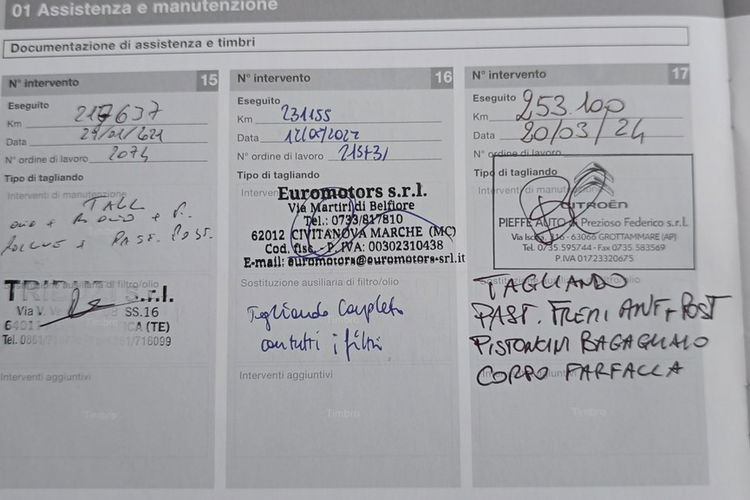 01 Assistenza e manutenzione
Documentazione di assistenza e timbri
N° intervento 15
Eseguito
Km 217637
Data
N° ordine di lavoro 2074
Tipo di tagliando
Interventi di manutenzione
TAGL
PAST. POST.
ausiliaria di filtro/olio
s.r.l.
Via V. SS.16
(TE)
Tel.
Interventi aggiuntivi
Timbro
N° intervento 16
Eseguito
Km 231155
Data
N° ordine di lavoro
Tipo di tagliando
Euromotors s.r.l.
Via Martiri di Belfiore
Tel. 0733/817810
62012 CIVITANOVA MARCHE (MC)
Cod. fisc. - P. IVA: 00302310438
E-mail: euromotors@euromotors-srl.it
Sostituzione ausiliaria di filtro/olio
Tagliando Completo
con tutti i filtri
Interventi aggiuntivi
Timbro
N° intervento 17
Eseguito
Km 253.100
Data 20/03/24
N° ordine di lavoro
Tipo di tagliando
CITROËN
PIEFFE AUTO di Prezioso Federico s.r.l.
Via Ischia, 216 - 63066 GROTTAMMARE (AP)
Tel. 0735.595744 - Fax 0735 583569
P.IVA 01723320675
TAGLIANDO
PAST. FRENI ANT + POST
PISTONCINI BAGAGLIAIO
CORPO FARFALLA
Timbro